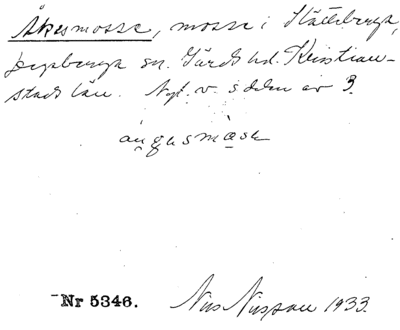 Åkesmosse, mosse i Hätteberga,
Degeberga sn. Gärds hd. Kristian-
stads län. Nyl. v. s delen av 3.
åu̯gǝsmåsa
Nr 5346. Nils Nilsson 1933.